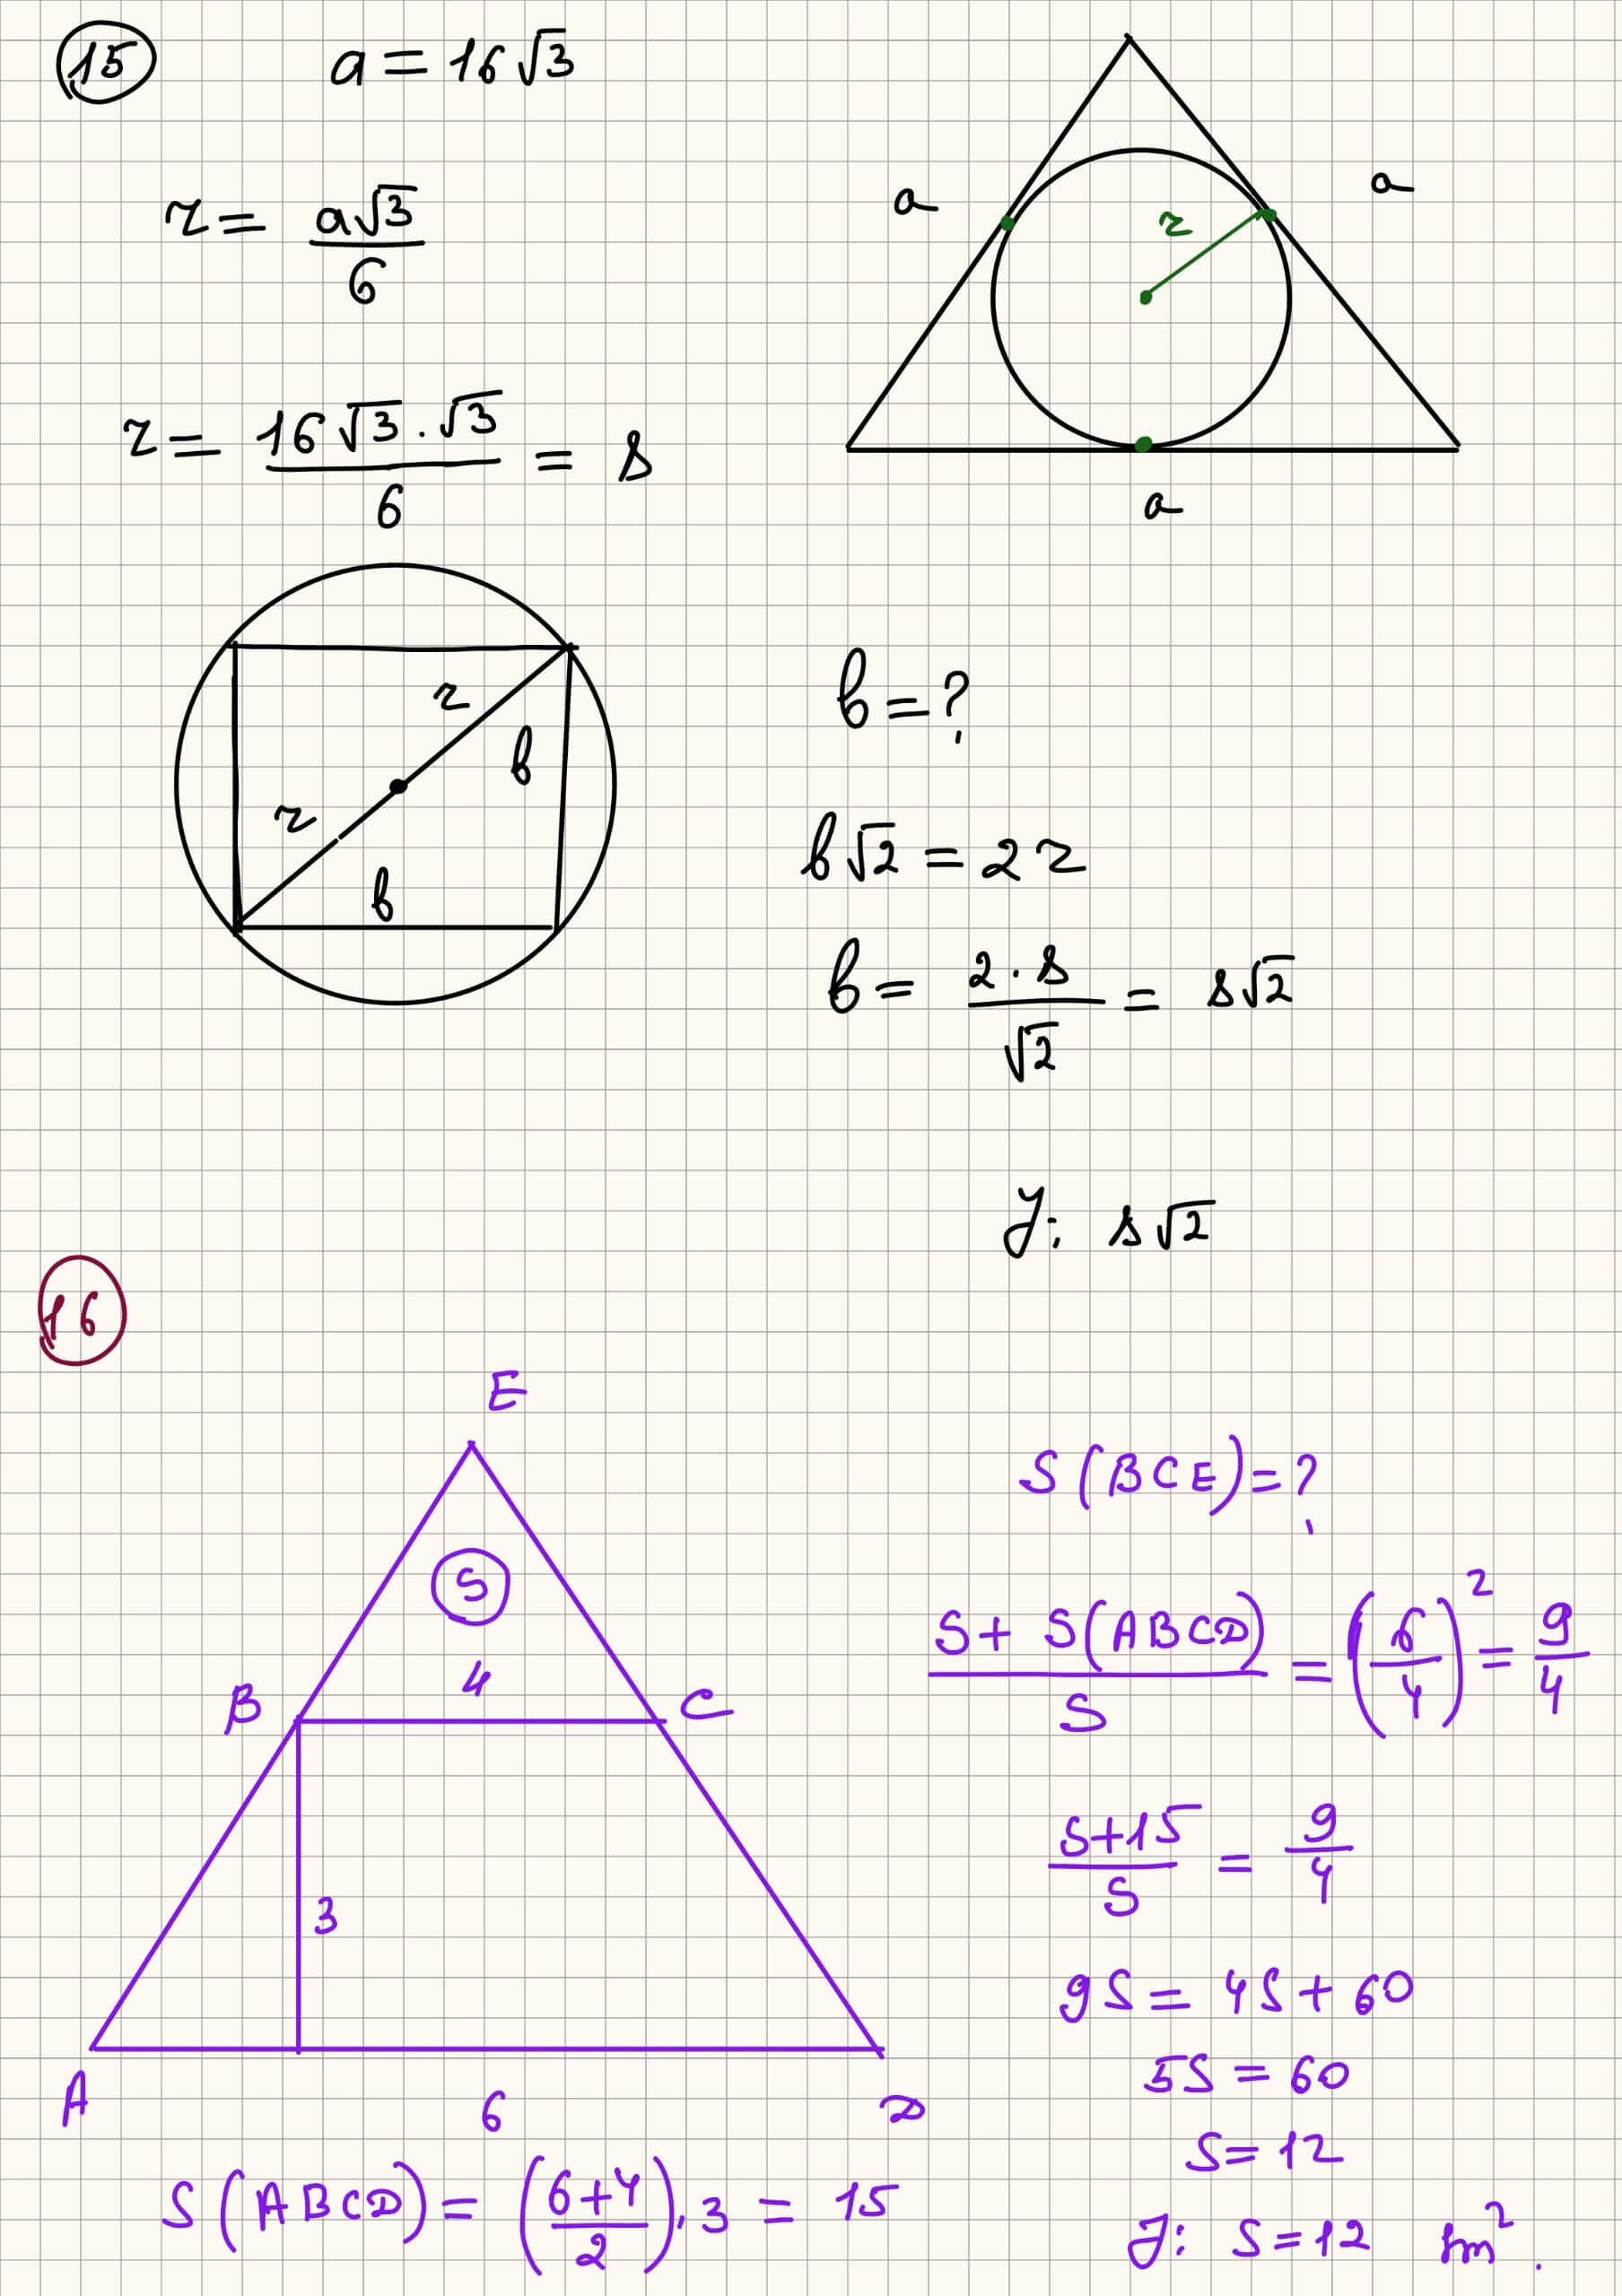 15
a = 16√3
r = a√3/6
a
a
r
a
r = 16√3 · √3/6 = 8
r
r
b
b
b = ?
b√2 = 2r
b = 2 · 8/√2 = 8√2
J: 8√2
16
E
S
4
B
C
3
A
6
D
S(ABCD) = (6+4/2) · 3 = 15
S(BCE) = ?
S + S(ABCD)/S = (6/4)² = 9/4
S+15/S = 9/4
9S = 4S + 60
5S = 60
S = 12
J: S = 12 sm².